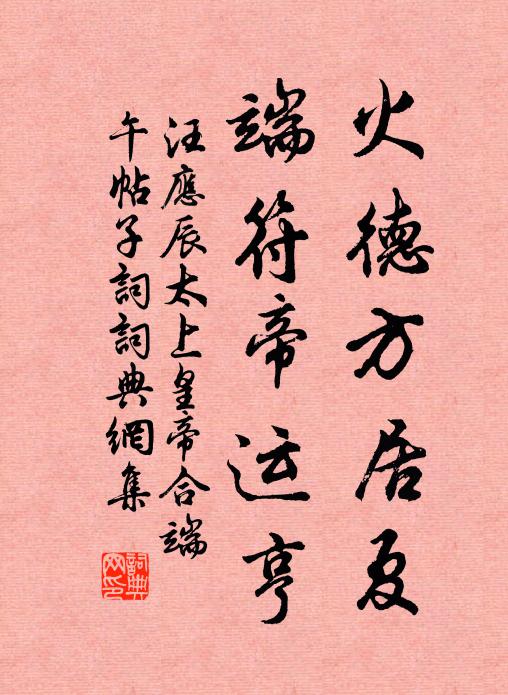 火德方居夏
端符帝运亨
汪應辰太上皇帝合端
午帖子詞詞典網集
詞典
网印